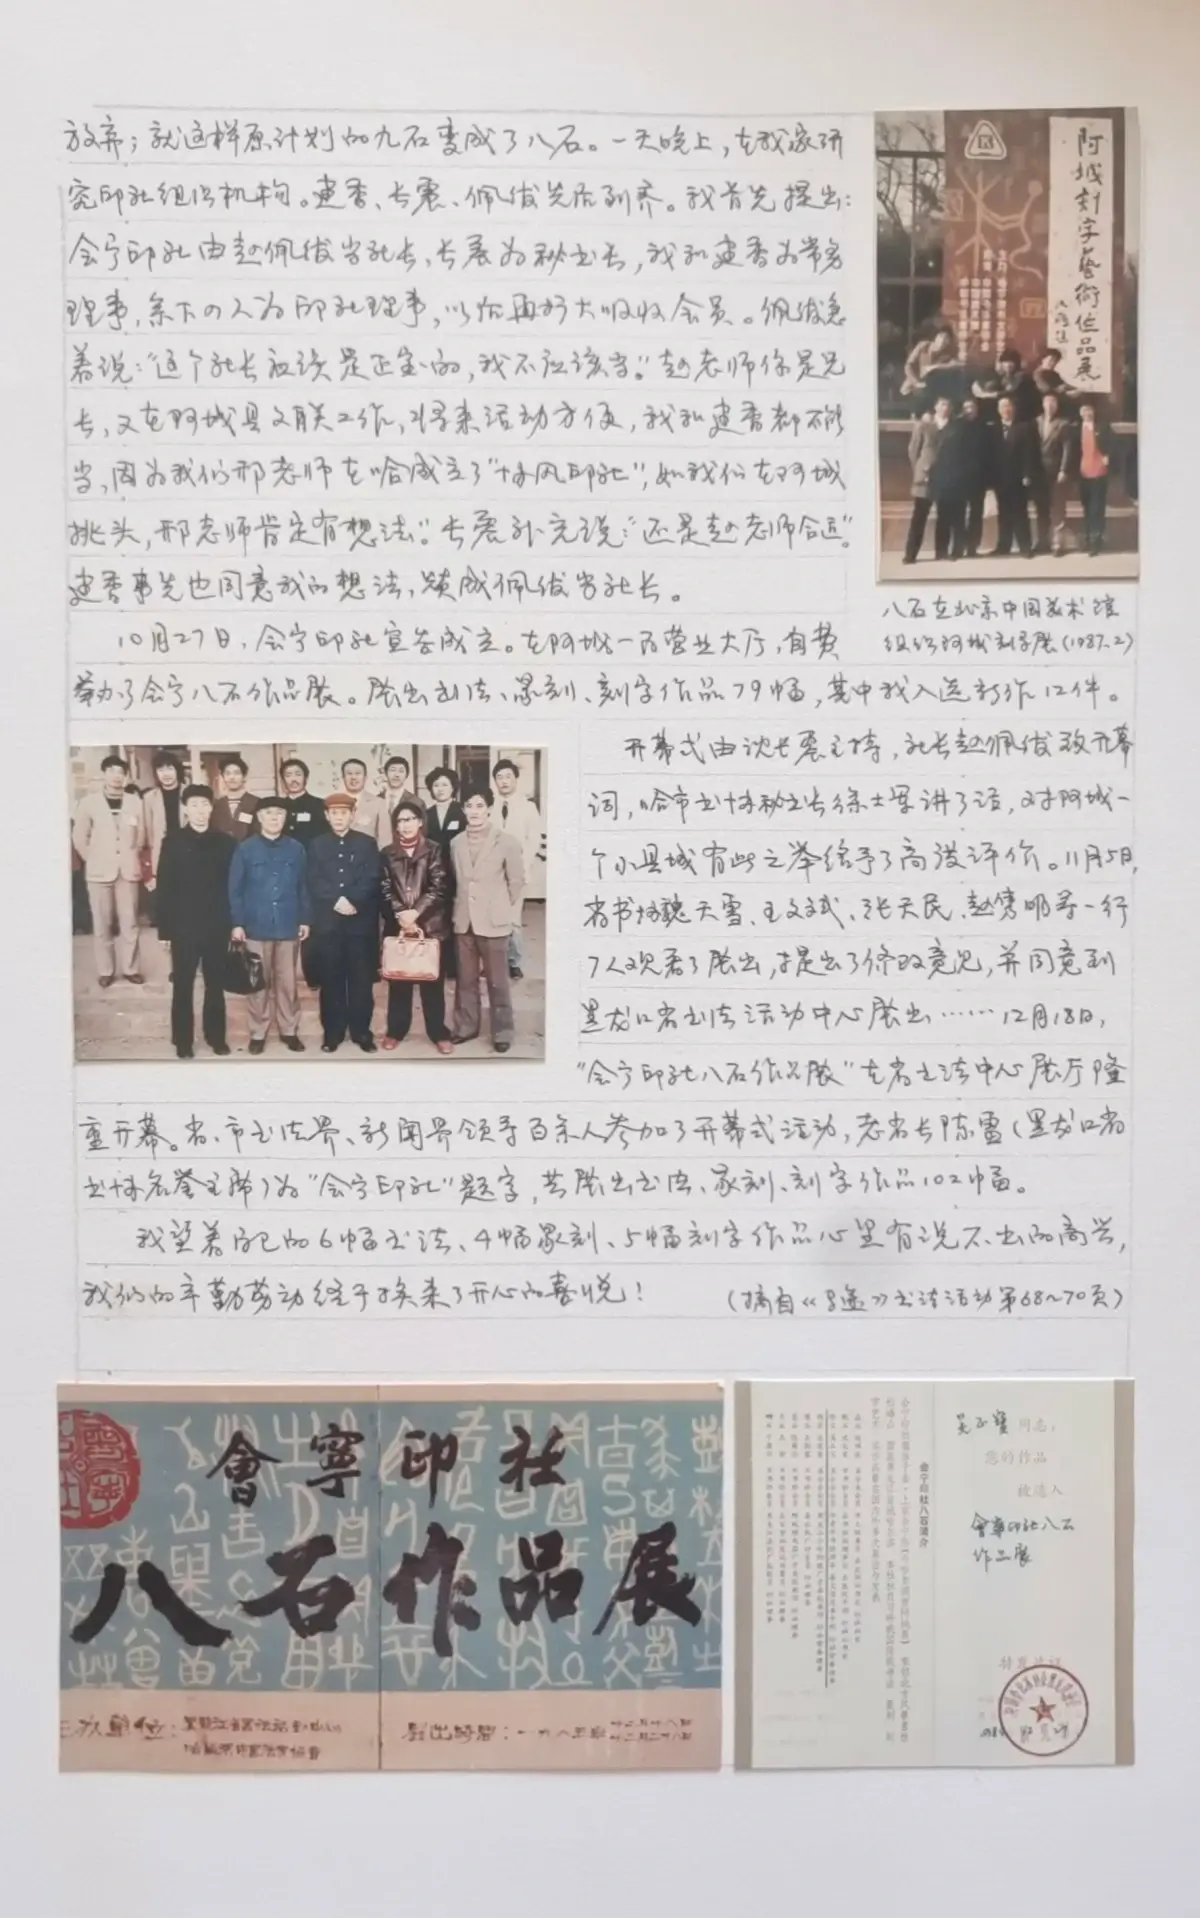 放弃；就这样原计划的九石变成了八石。一天晚上，在我家研
究印社组织机构。建香、长震、佩俊先后到齐。我首先提出：
会宁印社由赵佩俊当社长、长震为秘书长，我和建香为常务
理事，余下の人为印社理事，以后再扩大吸收会员。佩俊急
着说：“这个社长应该是正宝的，我不应该当。”赵老师你是兄
长，又在阿城县文联工作，将来活动方便，我和建香都不能
当，因为我们邢老师在哈成立了“松风印社”，如我们在阿城
挑头，邢老师肯定有想法。”长震补充说：“还是赵老师合适”。
建香事先也同意我的想法，赞成佩俊当社长。
10月27日，会宁印社宣告成立。在阿城一百营业大厅，自费
举办了会宁八石作品展。展出书法、篆刻、刻字作品79幅，其中我入选新作12件。
开幕式由沈长震主持，社长赵佩俊致开幕
词，哈市书协秘书长徐士军讲了话，对阿城一
个小县城有此之举给予了高度评价。11月5日，
省书协魏天雪、王文斌、张天民、赵隽明等一行
7人观看了展出，提出了修改意见，并同意到
黑龙江省书法活动中心展出……12月18日，
“会宁印社八石作品展”在省书法中心展厅隆
重开幕。省、市书法界、新闻界领导百余人参加了开幕式活动，老省长陈雷（黑龙江省
书协名誉主席）为“会宁印社”题字，共展出书法、篆刻、刻字作品102幅。
我望着自己的6幅书法、4幅篆刻、5幅刻字作品心里有说不出的高兴，
我们的辛勤劳动终于换来了开心的喜悦！
（摘自《足迹》书法活动第68~70页）
阿城刻字藝術作品展
八石在北京中国美术馆
组织阿城刻字展（1987.2）
會寧印社
八石作品展
主办單位：
黑龍江省書法活動中心
哈爾濱市書法家協會
展出時間：一九八五年
十二月十八日
十二月二十八日
会宁印社八石简介
吴正寳 同志：
您的作品
被选入
會寧印社八石
作品展
特发此证